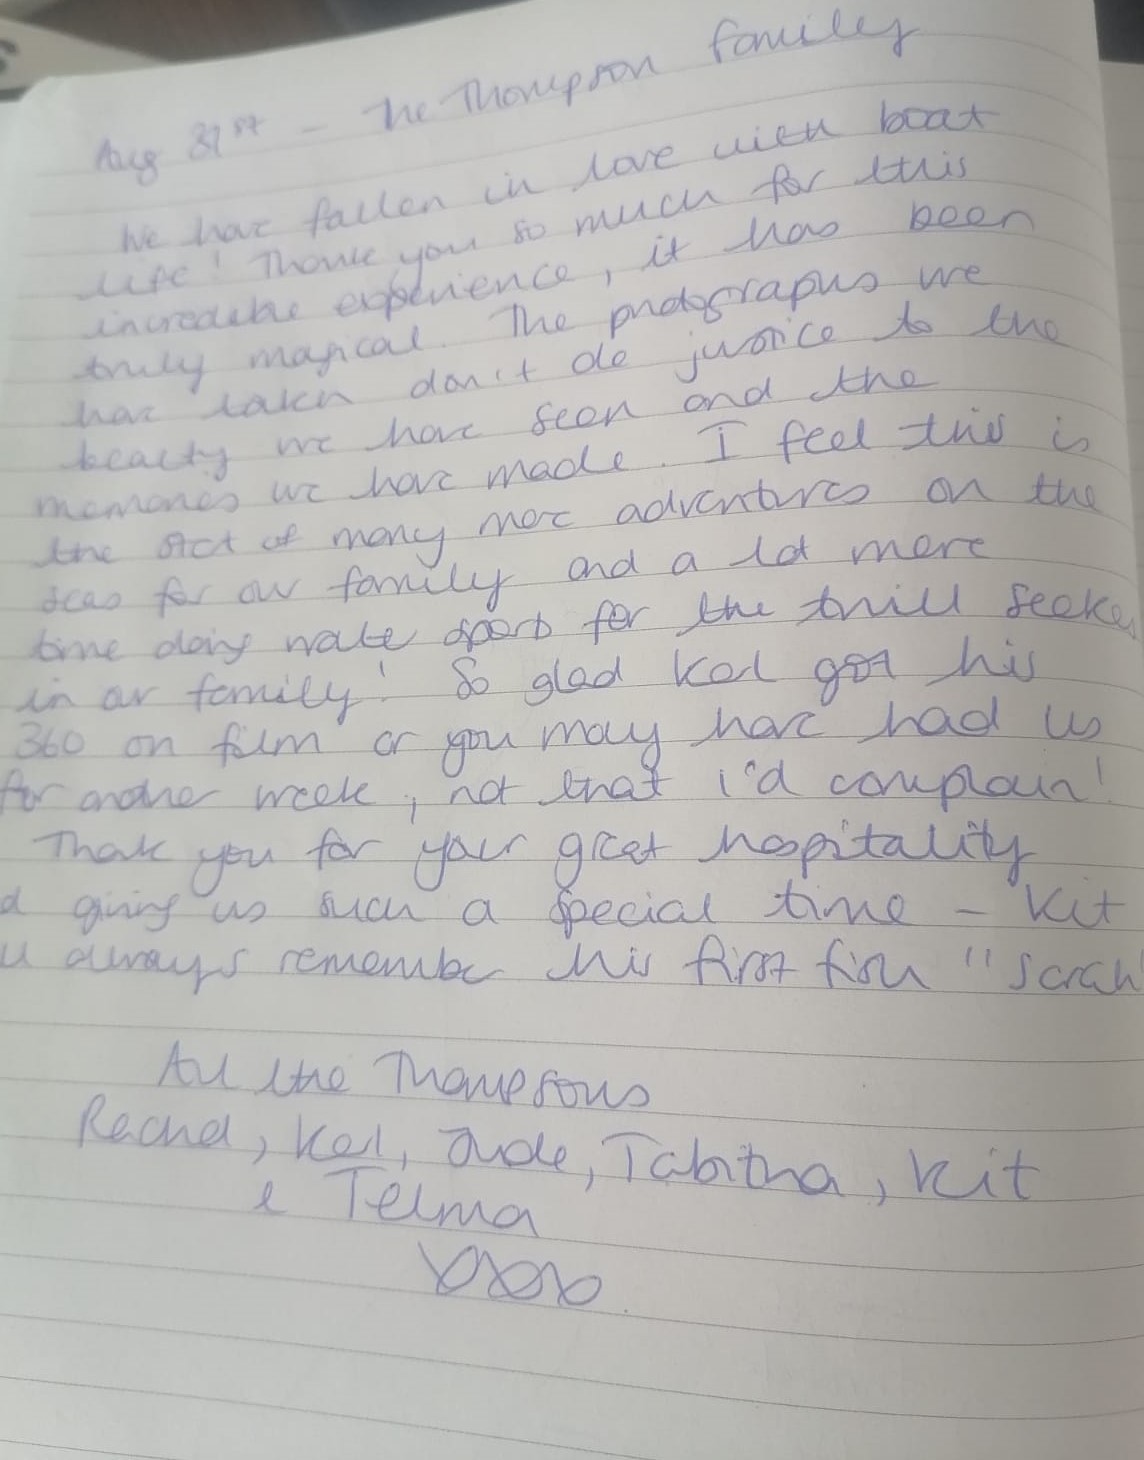 Aug 31st - The Thompson family
We have fallen in love with boat
life! Thank you so much for this
incredible experience, it has been
truly magical. The photographs we
have taken don't do justice to the
beauty we have seen and the
memories we have made. I feel this is
the start of many more adventures on the
seas for our family and a lot more
time doing water sports for the thrill seeke
in our family! So glad Kel got his
360 on film or you may have had us
for another week, not that i'd complain!
Thank you for your great hospitality
d giving us such a special time - Kit
ll always remember his first fish "Sarah"
All the Thompsons
Rachel, Kel, Jude, Tabitha, Kit
& Telma
xoxo